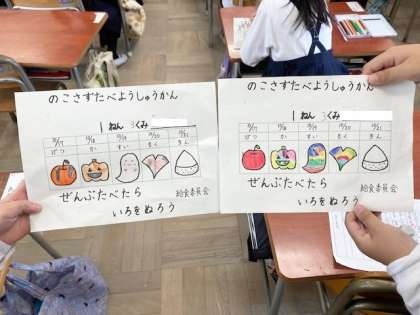 のこさずたべようしゅうかん
1ねん 3くみ
10/17 10/18 10/19 10/20 10/21
げつ かい すい もく きん
ぜんぶたべたら
いろをぬろう
給食委員会
のこさずたべようしゅうかん
1ねん 3くみ
10/17 10/18 10/19 10/20 10/21
げつ かい すい もく きん
ぜんぶたべたら
いろをぬろう
給食委員会